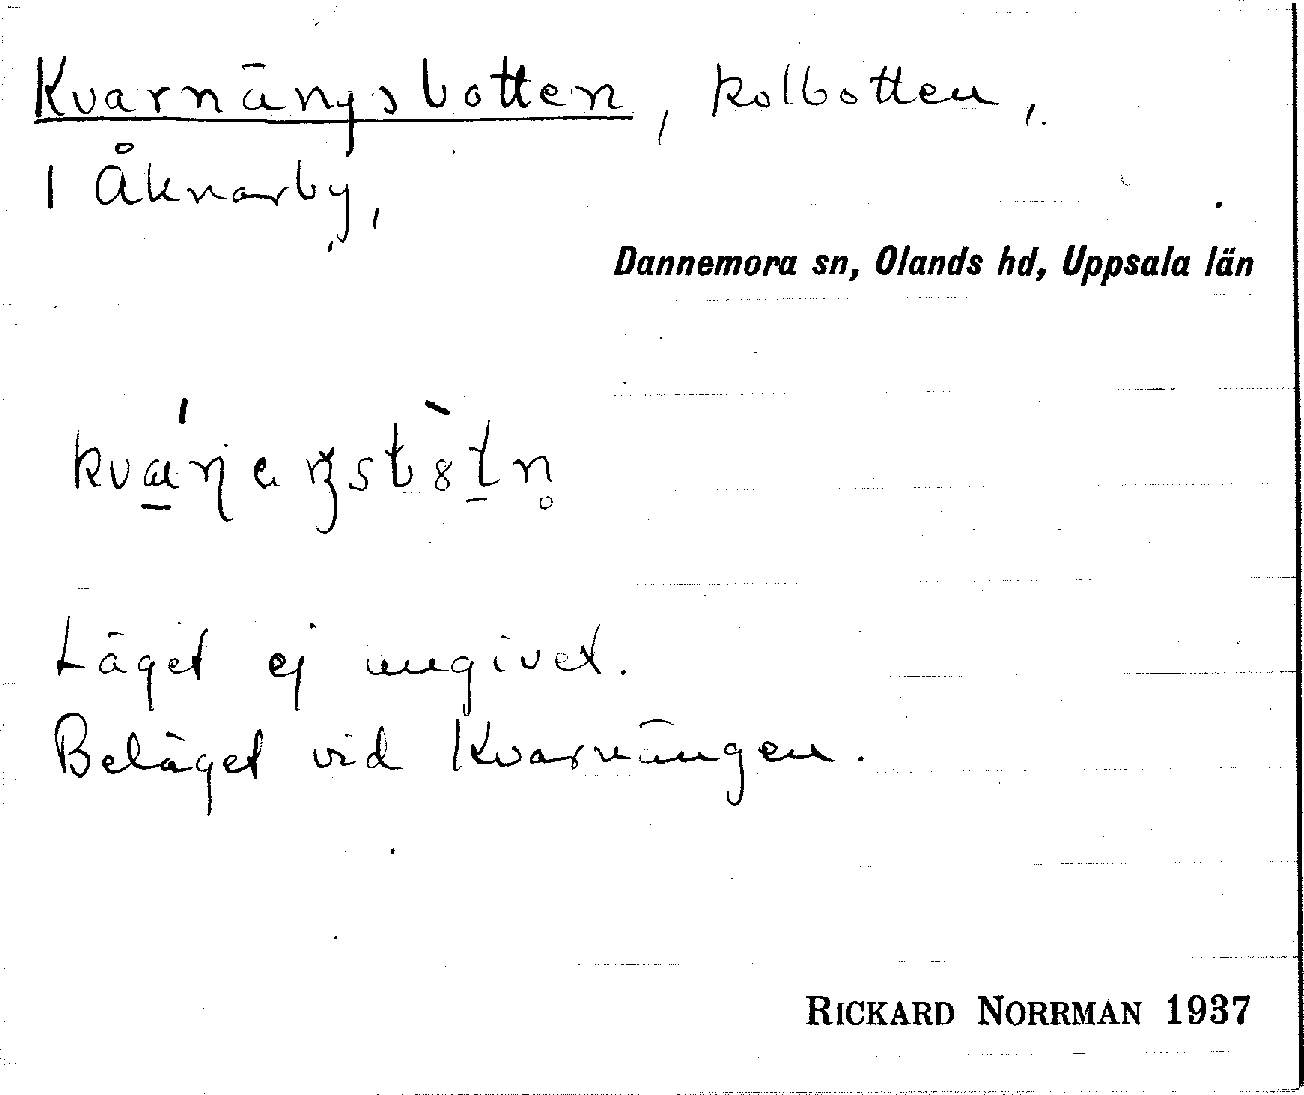 Kvarnängsbotten, kolbotten,
i Åknarby,
Dannemora sn, Olands hd, Uppsala län
Läget ej angivet.
Beläget vid Kvarnängen.
RICKARD NORRMAN 1937